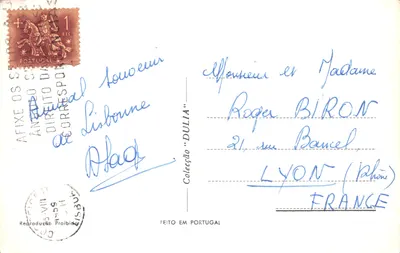 1
PORTUGAL
AFIXE OS S
ÂN
DIREITO DA
CORRESPON
Amical souvenir
de Lisbonne
Monsieur et Madame
Roger BIRON
21, rue Bancel
LYON (Rhône)
FRANCE
Colecção "DULIA"
Reprodução Proibida
FEITO EM PORTUGAL